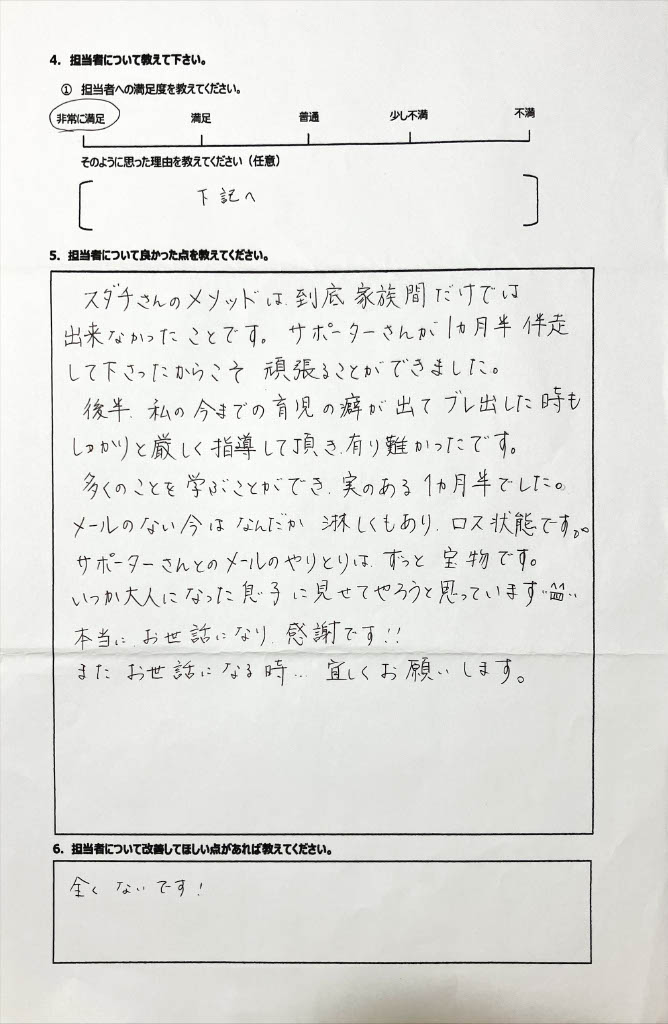 4. 担当者について教えて下さい。
① 担当者への満足度を教えてください。
非常に満足 満足 普通 少し不満 不満
そのように思った理由を教えてください（任意）
下記へ
5. 担当者について良かった点を教えてください。
スダチさんのメソッドは、到底 家族間だけでは
出来なかったことです。 サポーターさんが 1ヵ月半 伴走
して下さったからこそ 頑張ることができました。
後半、私の今までの育児の癖が 出て ブレ出した時も
しっかりと厳しく指導して頂き、有り難かったです。
多くのことを学ぶことができ、実のある 1ヵ月半でした。
メールのない今は なんだか 淋しくもあり、ロス状態です。
サポーターさんとのメールのやりとりは、ずっと 宝物です。
いつか大人になった息子に見せてやろうと思っています
本当に、お世話になり、感謝です!!
また お世話になる時… 宜しくお願いします。
6. 担当者について改善してほしい点があれば教えてください。
全く ないです!